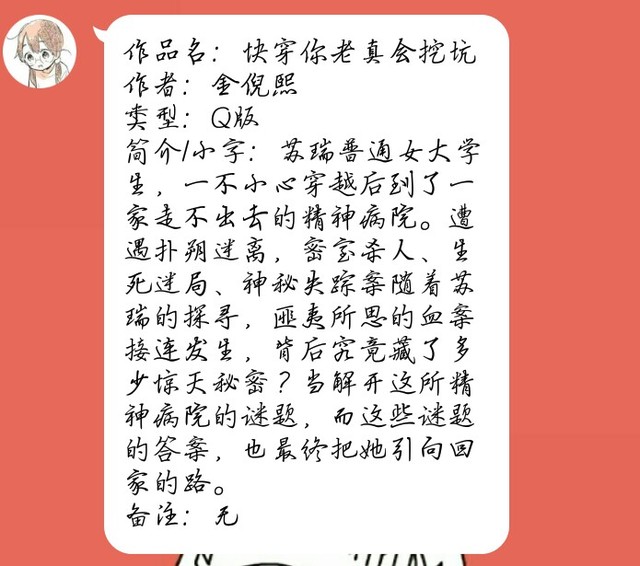 作品名：快穿你老真会挖坑
作者：金倪熙
类型：Q版
简介/小字：苏瑞普通女大学
生，一不小心穿越后到了一
家走不出去的精神病院。遭
遇扑朔迷离，密室杀人、生
死迷局、神秘失踪案随着苏
瑞的探寻，匪夷所思的血案
接连发生，背后究竟藏了多
少惊天秘密？当解开这所精
神病院的谜题，而这些谜题
的答案，也最终把她引向回
家的路。
备注：无